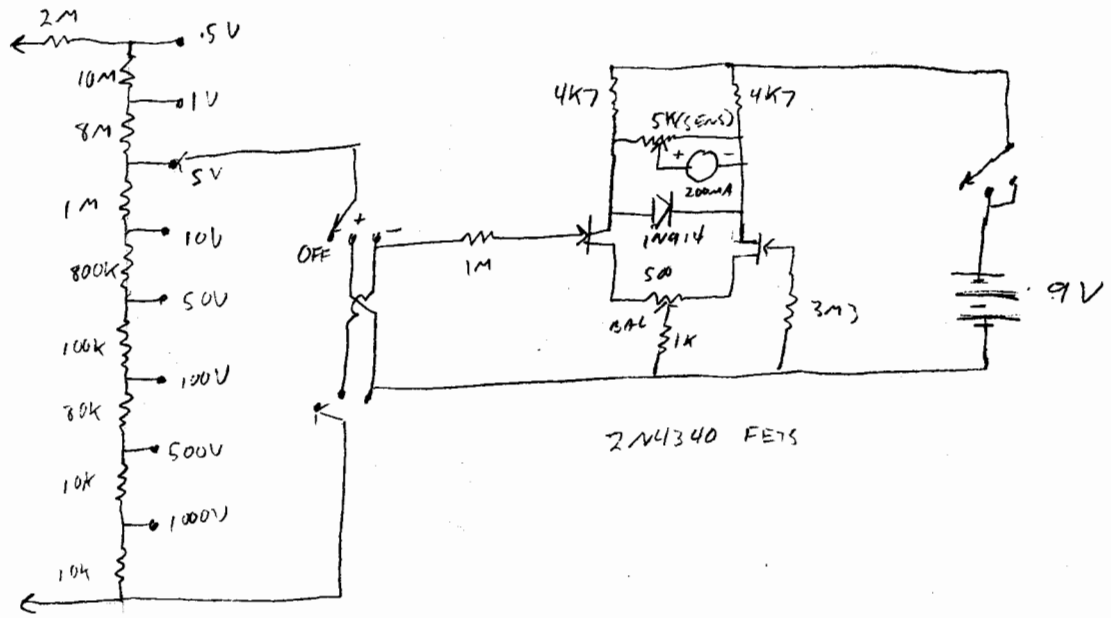 2M
.5V
10M
1V
8M
5V
1M
10V
800K
50V
100K
100V
80K
500V
10K
1000V
10K
OFF
+
-
1M
4K7
4K7
5K(SENS)
+
-
200MA
1N914
500
BAL
1K
3M3
9V
2N4340 FETS